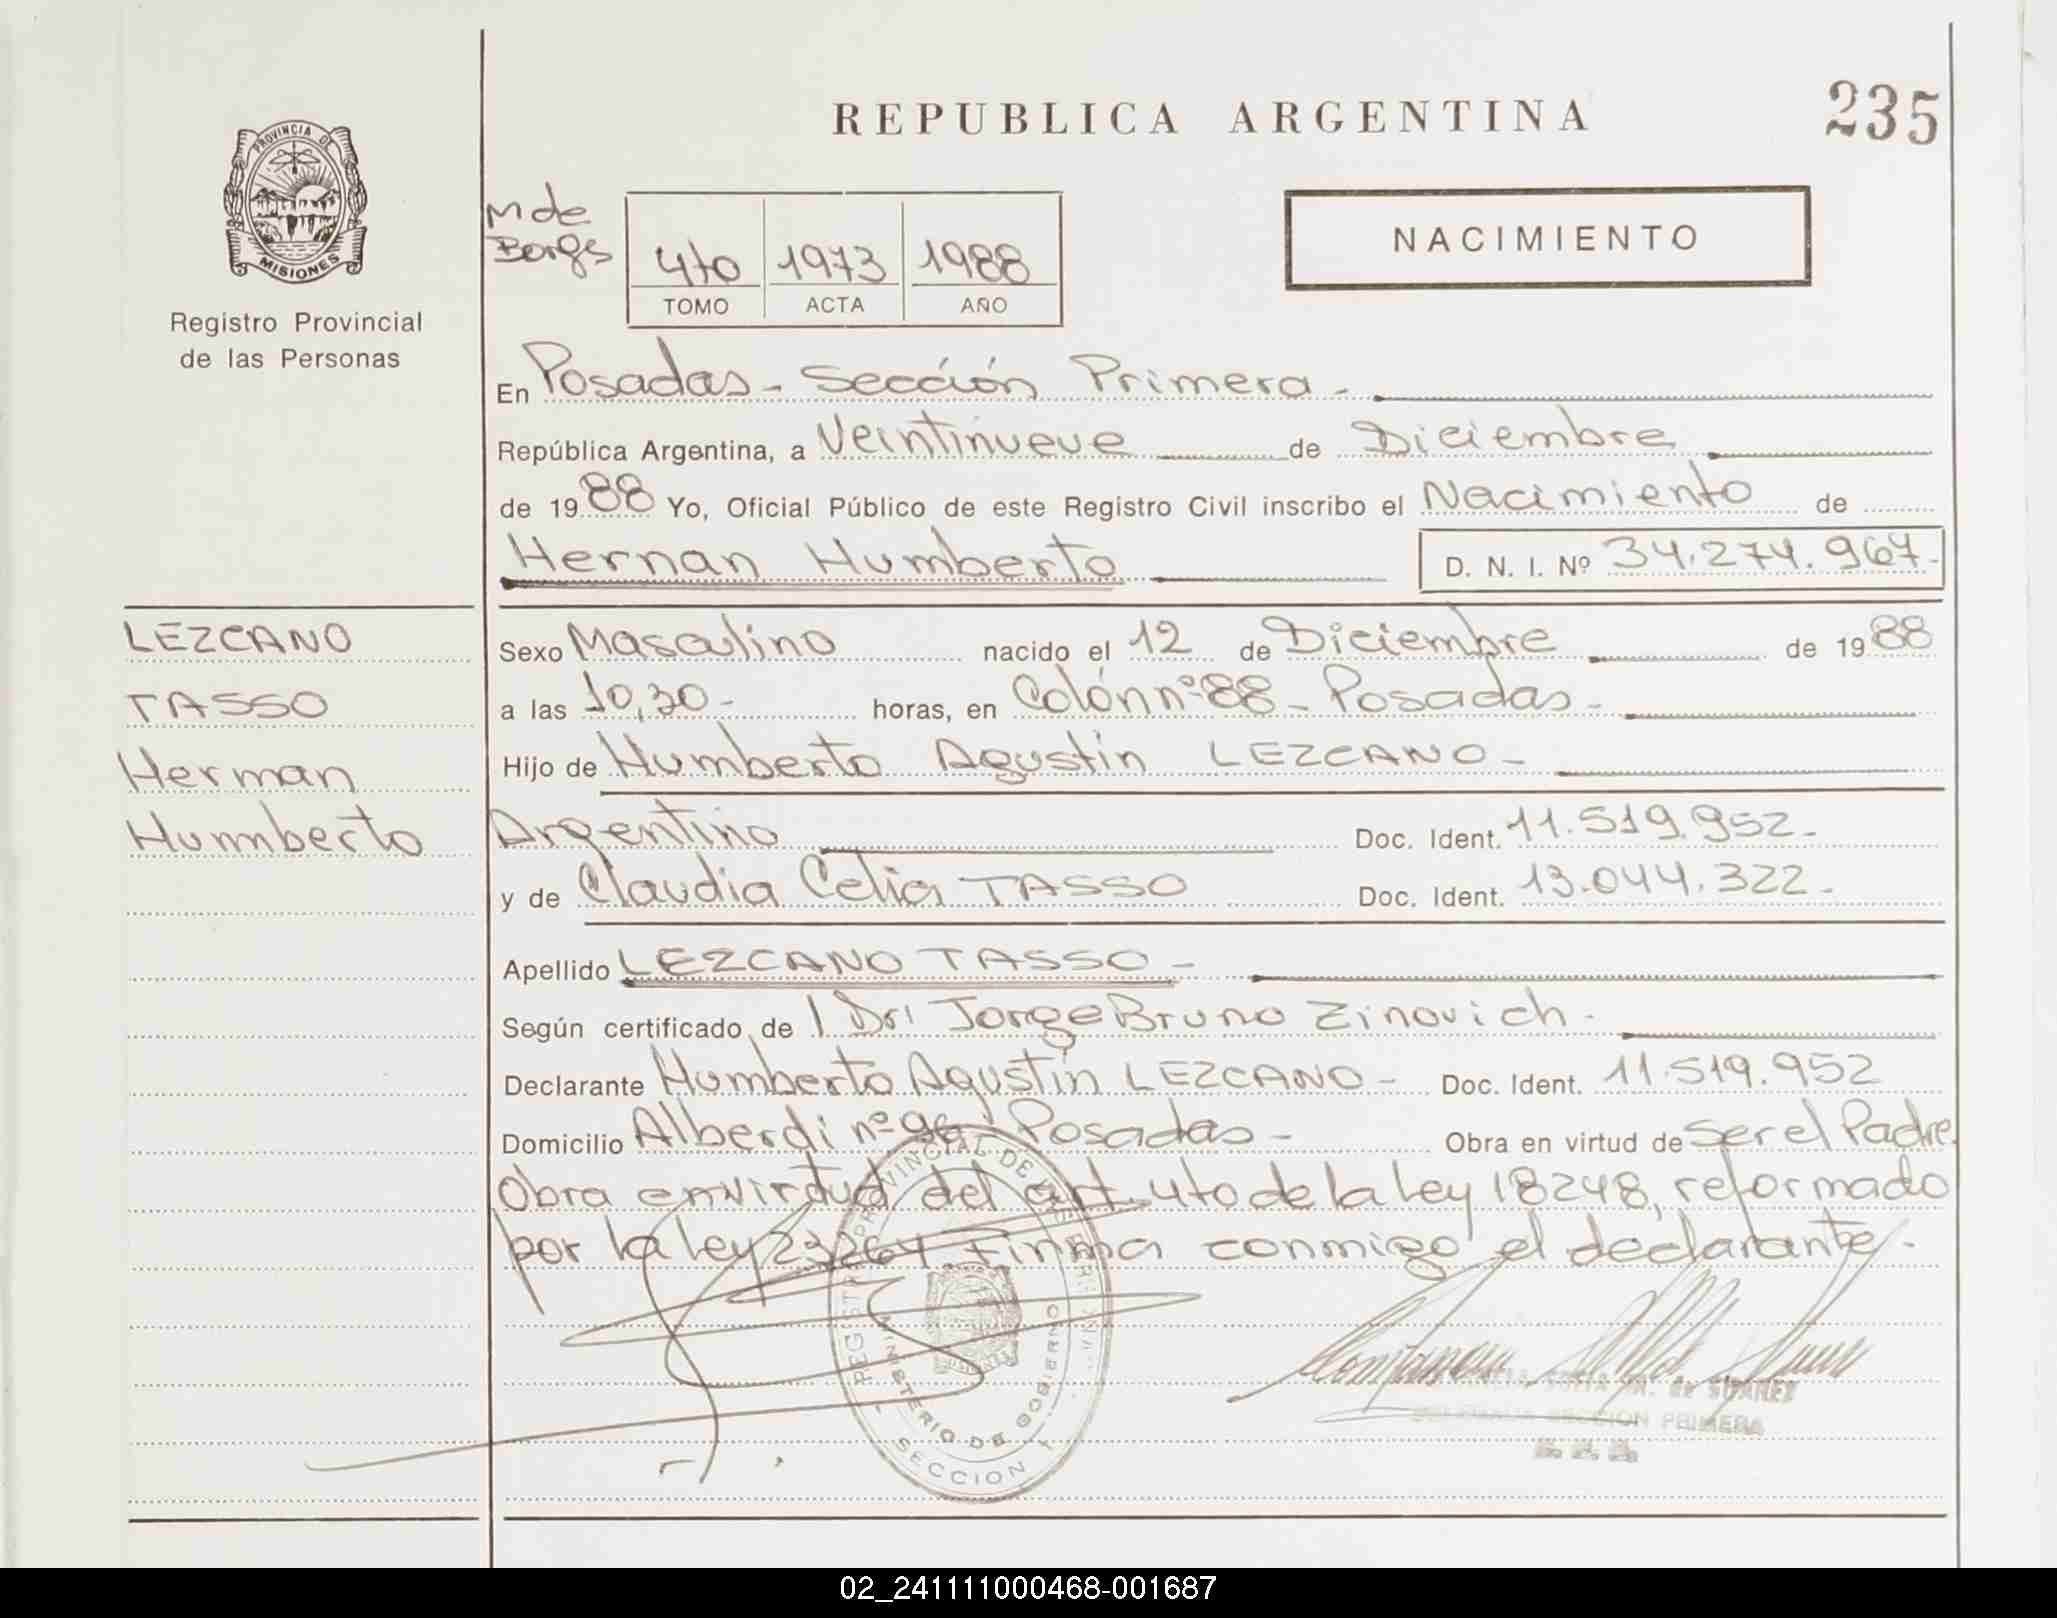 REPUBLICA ARGENTINA
235
PROVINCIA DE
MISIONES
Registro Provincial
de las Personas
M de
Borges
4to 1973 1988
TOMO ACTA AÑO
NACIMIENTO
En Posadas - Sección Primera -
República Argentina, a Veintinueve de Diciembre
de 1988 Yo, Oficial Público de este Registro Civil inscribo el Nacimiento de
Hernan Humberto D. N. I. Nº 34.274.967-
LEZCANO
TASSO
Herman
Humberto
Sexo Masculino nacido el 12 de Diciembre de 1988
a las 10,30- horas, en Colón nº 88 - Posadas -
Hijo de Humberto Agustín LEZCANO -
Argentino Doc. Ident. 11.519.952-
y de Claudia Celia TASSO Doc. Ident. 13.044.322-
Apellido LEZCANO TASSO -
Según certificado de l Dr: Jorge Bruno Zinovich -
Declarante Humberto Agustín LEZCANO - Doc. Ident. 11.519.952
Domicilio Alberdi nº 96 Posadas - Obra en virtud de Ser el Padre.
Obra en virtud del art. 4to de la Ley 18248, reformado
por la Ley 23264 Firma conmigo el declarante -
REGISTRO PROVINCIAL DE
MINISTERIO DE GOBIERNO
SECCION 1
SOFIA de SUAREZ
SECCION PRIMERA
02_241111000468-001687